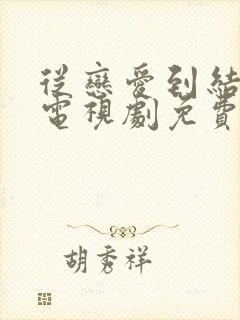 從戀愛到結
電視劇免費
胡秀祥